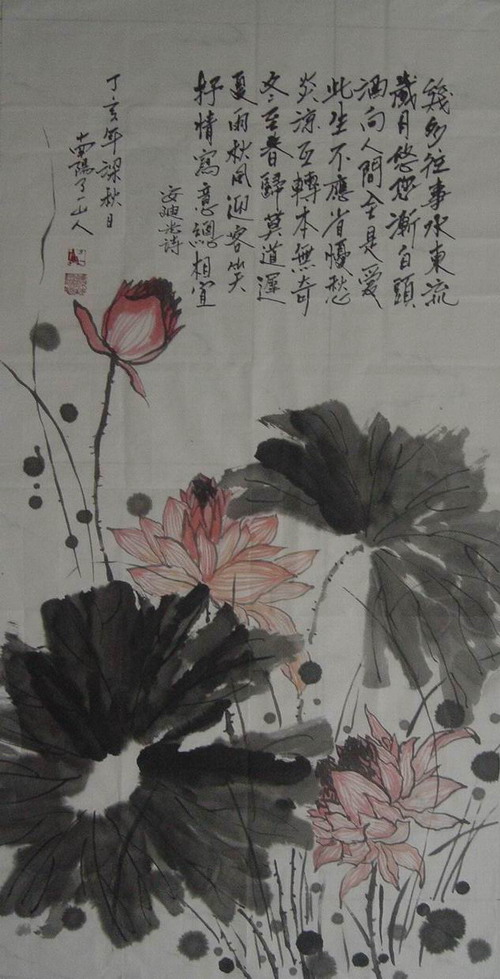 幾多往事水東流
歲月悠悠漸白頭
洒向人間全是愛
此生不應省懮愁
炎凉互轉本無奇
冬至春歸莫道遲
夏雨秋風迎客笑
抒情寫意總相宜
迪光詩
丁亥年深秋日
南陽山人